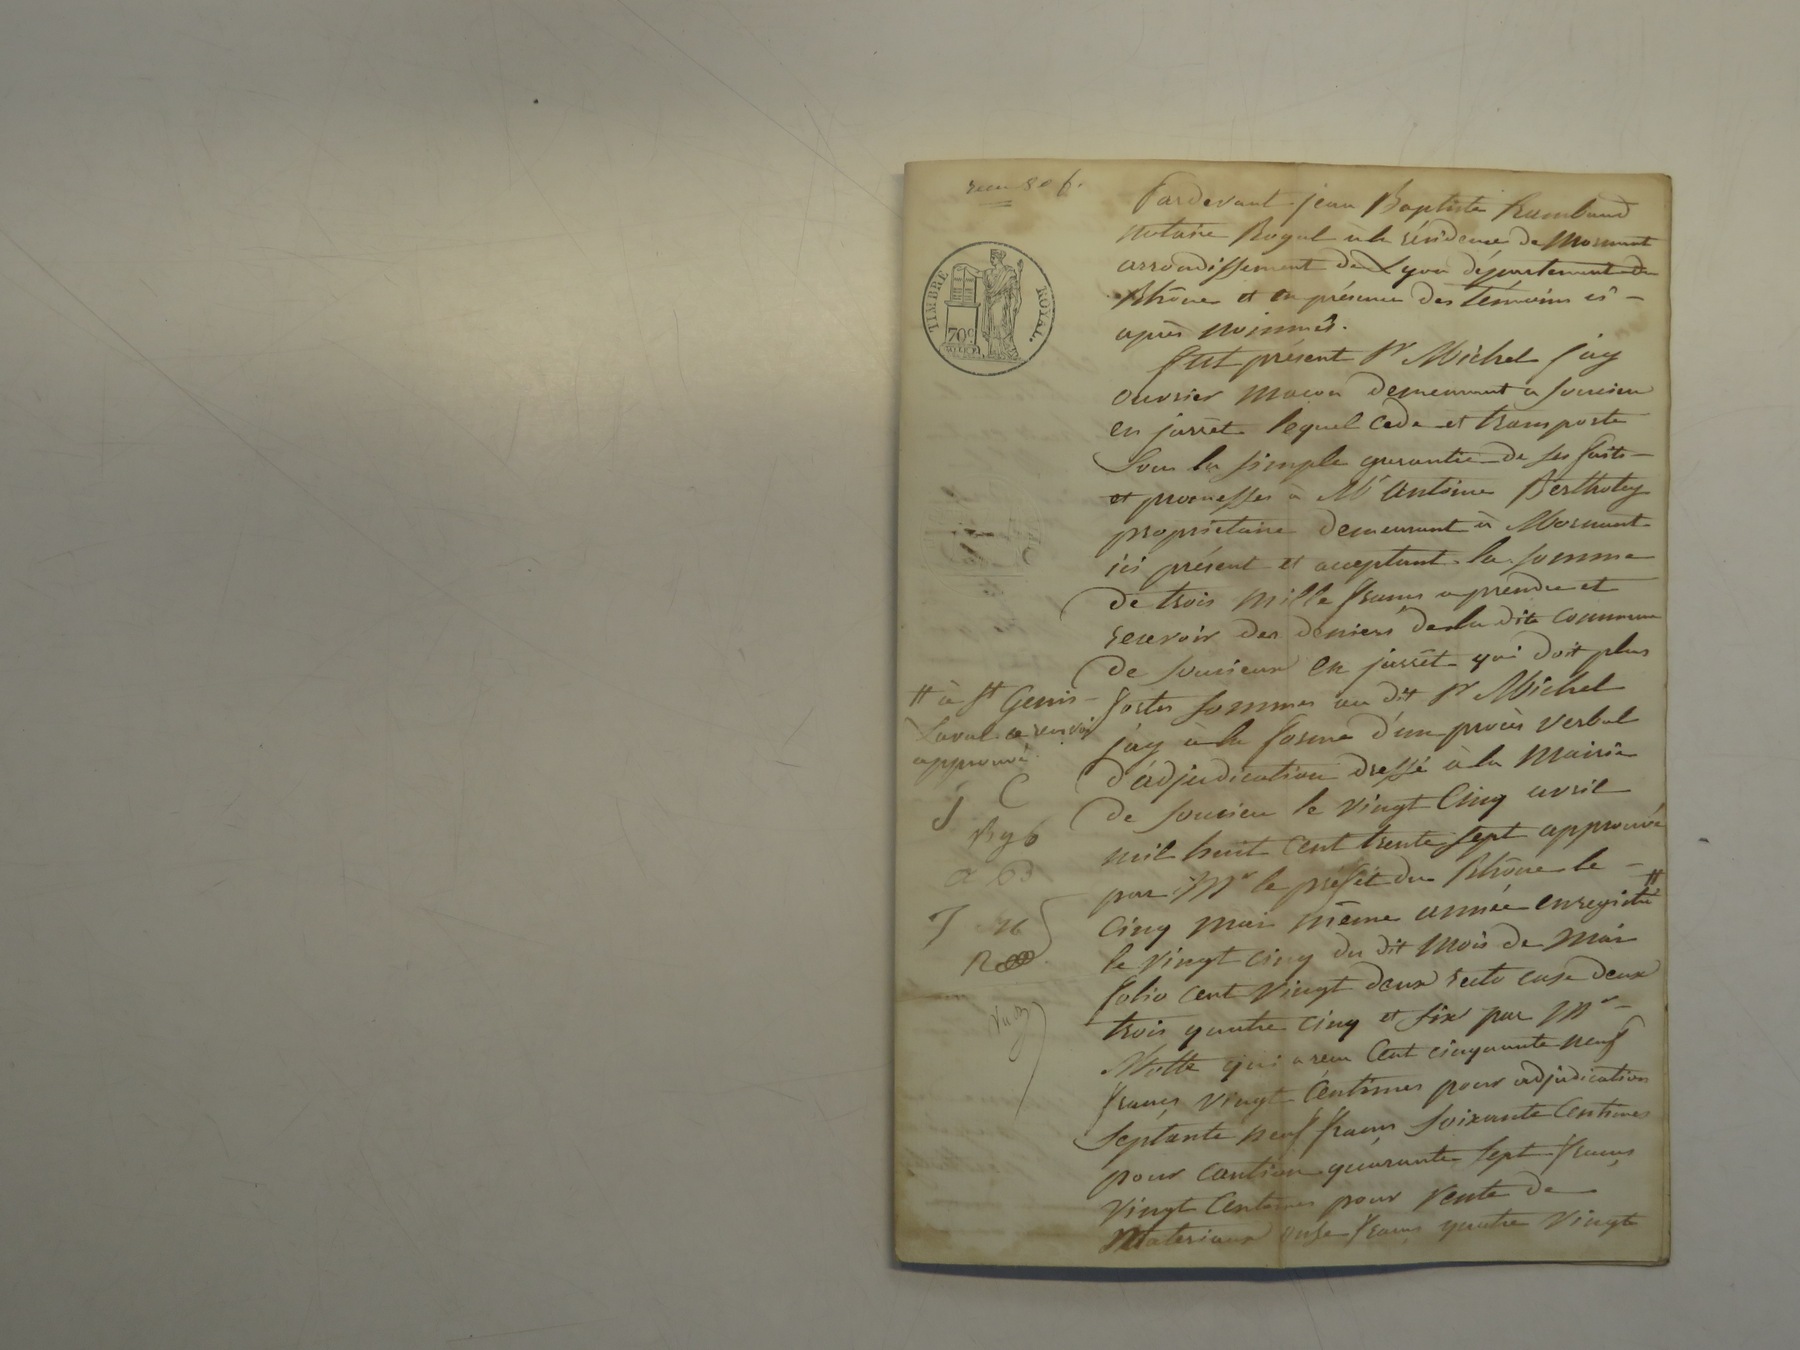 TIMBRE ROYAL.
70c
Pardevant jean Baptiste Rambaud
notaire Royal à la résidence de Mornant
arrondissement de Lyon département du
Rhône et en présence des témoins ci-
après nommés.
Fut présent Sr Michel Jay
ouvrier maçon demeurant a soucieu
en jarrêt lequel cede et transporte
Sous la simple garantie de ses faits
et promesses à Mr Antoine Bertholey
propriétaire demeurant à Mornant
ici présent et acceptant la somme
de trois mille francs a prendre et
recevoir des deniers de la dite commune
de soucieux en jarrêt qui doit plus
fortes sommes au dit Sr Michel
jay à la forme d'un procès verbal
d'adjudication dressé à la Mairie
de soucieu le vingt Cinq avril
mil huit Cent trente sept approuvé
par Mr le préfet du Rhône le -
Cinq mai même année enregistré #
le vingt cinq du dit mois de Mai
folio cent vingt deux recto case deux
trois quatre cinq et six par Mr -
qui a reçu Cent cinquante neuf
francs vingt Centimes pour adjudication
Septante neuf francs Soixante Centimes
pour caution quarante Sept francs
vingt Centimes pour vente de
Materiaux onze francs quatre vingt
# à St Genis-
Laval ce renvoi
approuvé